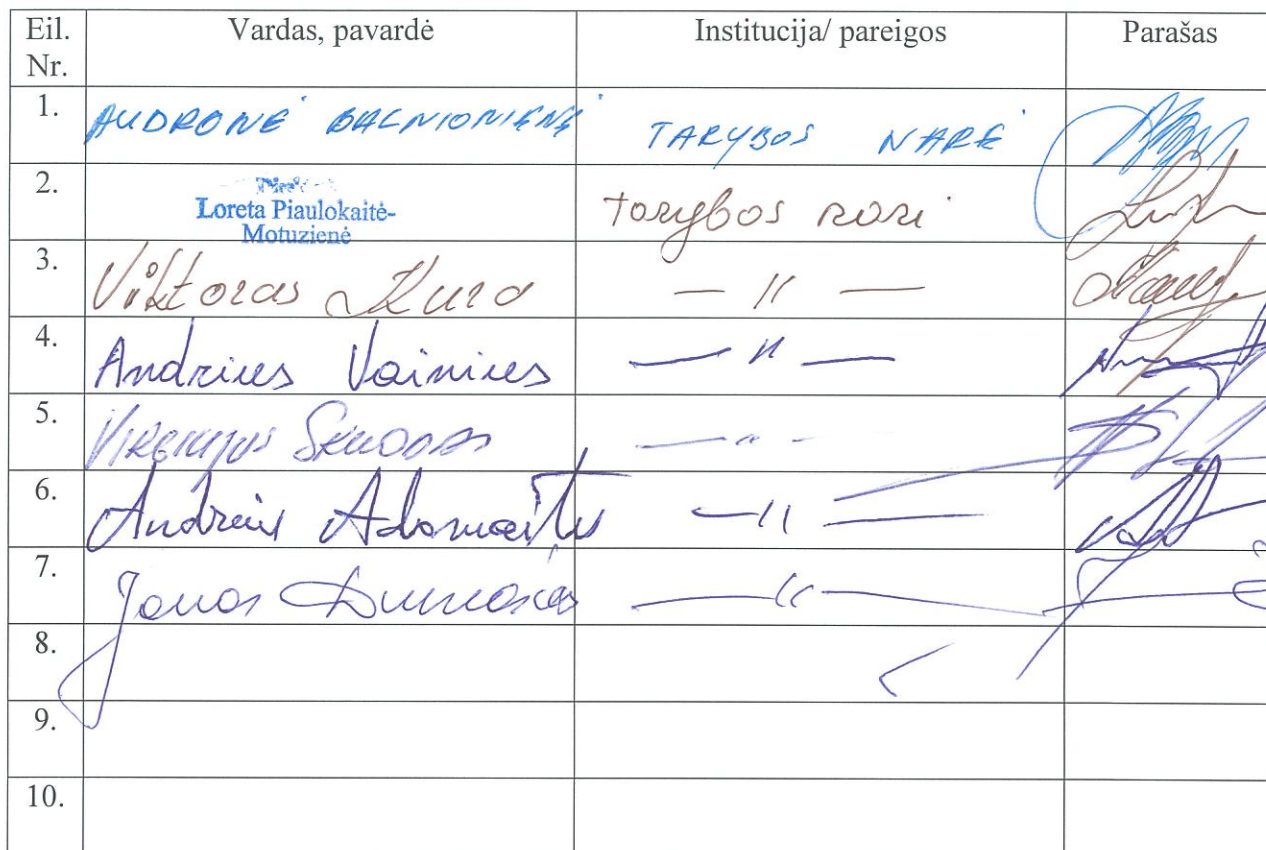 Eil. Nr. Vardas, pavardė Institucija/ pareigos Parašas
1. AUDRONĖ BALNIONIENĖ TARYBOS NARĖ
2. Loreta Piaulokaitė-
Motuzienė Tarybos narė
3. Viktoras Kura — 〃 —
4. Andrius Vainius — 〃 —
5. VIRGINIJUS SKUODAS — 〃 -
6. Andrius Adomaitis — 〃 —
7. Jonas — 〃 —
8.
9.
10.